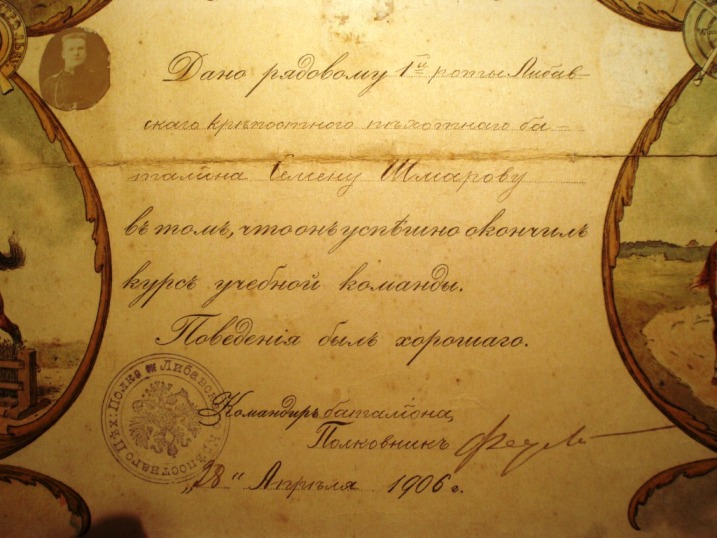 Дано рядовому 1й роты Либав-
скаго крѣпостного пѣхотнаго ба-
талiона Семену Шмарову
въ томъ, что онъ успѣшно окончилъ
курсъ учебной команды.
Поведенiя былъ хорошаго.
Командиръ баталiона,
Полковникъ
"28" Апрѣля 1906 г.